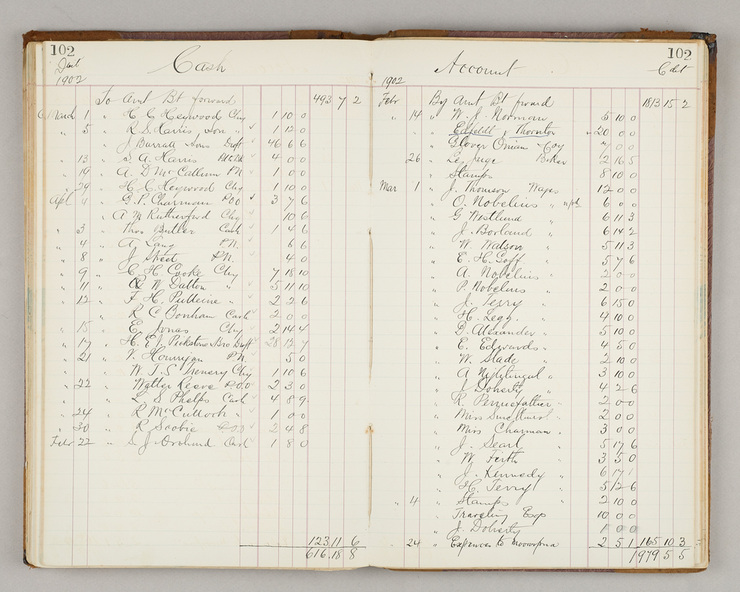 102
Cash
1902
To Amt Bt forward 493 7 2
March 1 " H C Heywood Chq 1 10 0
" 5 " R S Harris, Son " 1 12 0
" J Barratt Sons Draft 46 6 6
" 13 " S. A. Harris 4 0 0
" 19 " A. D McCallum PN 1 0 0
" 29 " H. C. Heywood Chq 1 10 0
Apl G. P. Chairman POO 3 7 6
" A M Rutherford Chq 1 10 6
" 3 " Thos Butler Cash 1 4 6
" 4 " A Lang P.N. 6 6
" 8 " J Skeat P.N. 4 0
" 9 " C H Cooke Chq 7 18 10
" 11 " W Dalton " 5 11 10
" 12 " F. H. " 2 2 6
R C Bonham Cash 2 0 0
" 15 " E Jonas Chq 2 14 4
" 17 " H. E. Bro Draft 28 12 7
" 21 " V. Hourigan P.N. 5 0
" W. J. S. Chq 1 10 6
" 22 " Walter Reeve POO 2 3 0
" L S Phelps Cash 4 8 9
" 24 " R McCulloch " 1 0 0
" 30 " R Scobie 2 4 8
Feb 22 " S. J. Cash 1 8 0
123 11 6
616 18 8
102
Account
1902
Feb By Amt Bt forward 1813 15 2
" 14 " W. J. Norman 5 10 0
" Thornton 20 0 0
" Glover Onian Coy 7 0 0
" 26 " Baker 2 16 5
" Stamps 8 10 0
Mar 1 " J. Thomson Wages 12 0 0
" O. Nobelius " 6 0 0
" G Westlund " 6 11 3
" J. Borland " 6 14 2
" W. Watson " 5 11 3
" E. H. Goff " 5 7 6
" A. Nobelius " 2 0 0
" P. Nobelius " 2 0 0
" J. Terry " 6 15 0
" H. Legg " 4 10 0
" D. Alexander " 5 10 0
" E. Edwards " 4 5 0
" W. Slade " 2 10 0
" A Nightingal " 3 10 0
" J. Doherty " 4 2 6
" R Pennefather " 2 0 0
" Miss " 2 0 0
" Miss Charman " 3 0 0
" J. Searl " 5 17 6
" W. Firth " 3 5 0
" J. Kennedy " 6 17 1
" H. Terry " 5 12 6
" 4 " Stamps " 2 10 0
" Traveling Exp 10 0 0
" J. Doherty 1 0 0
" 24 " Expences to 2 5 1 165 10 3
1979 5 5